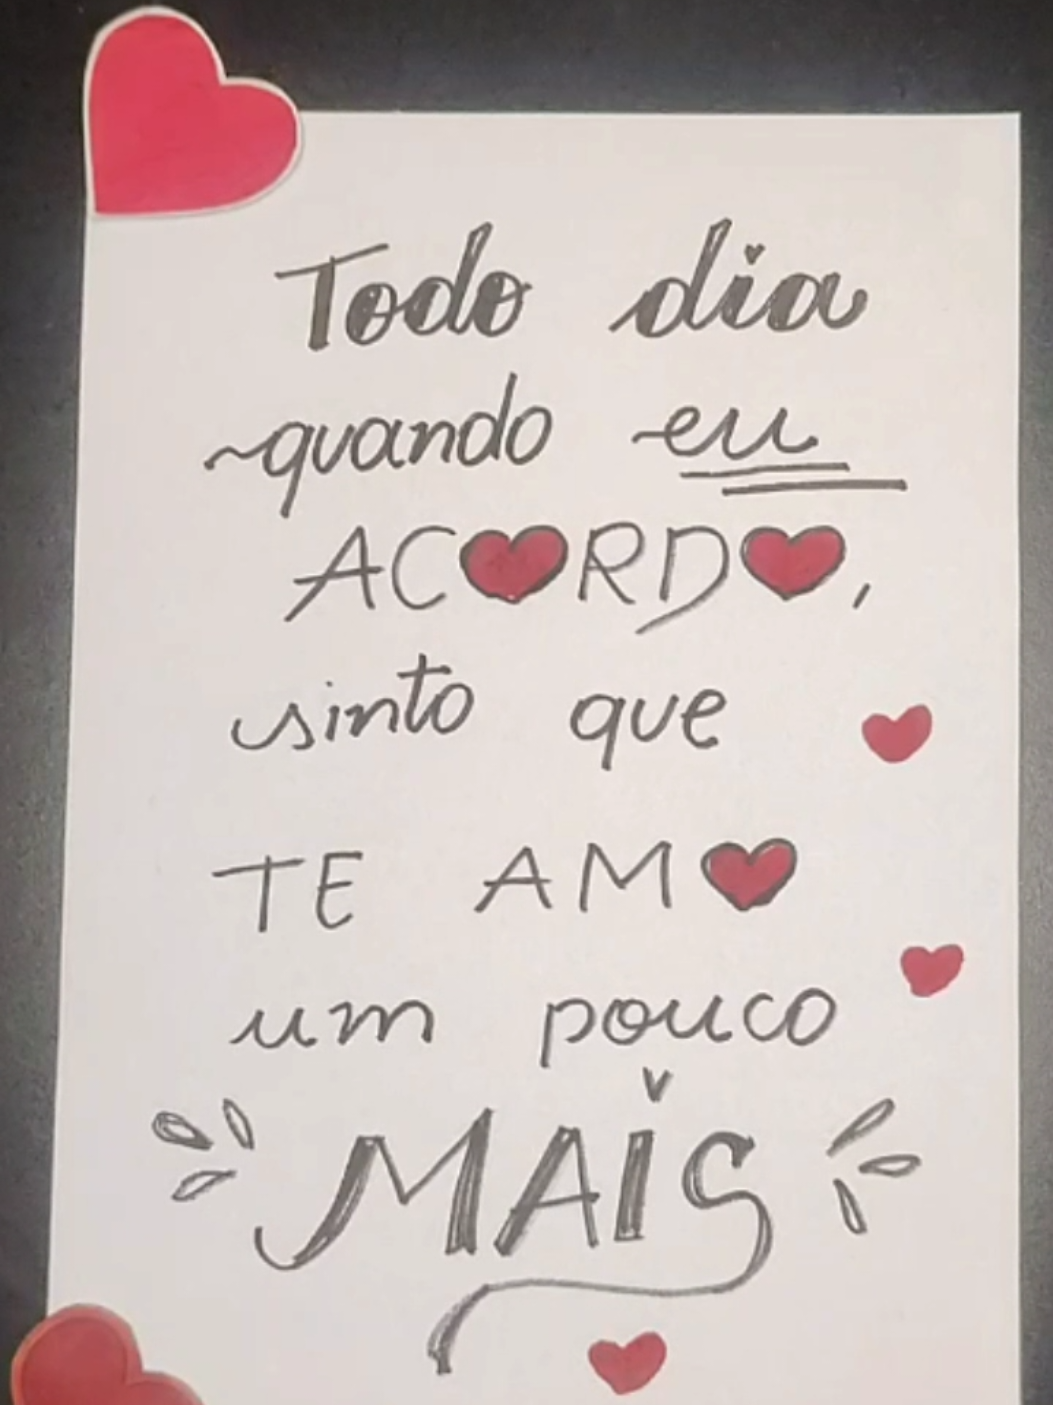 Todo dia
quando eu
ACORDO,
sinto que
TE AMO
um pouco
MAIS